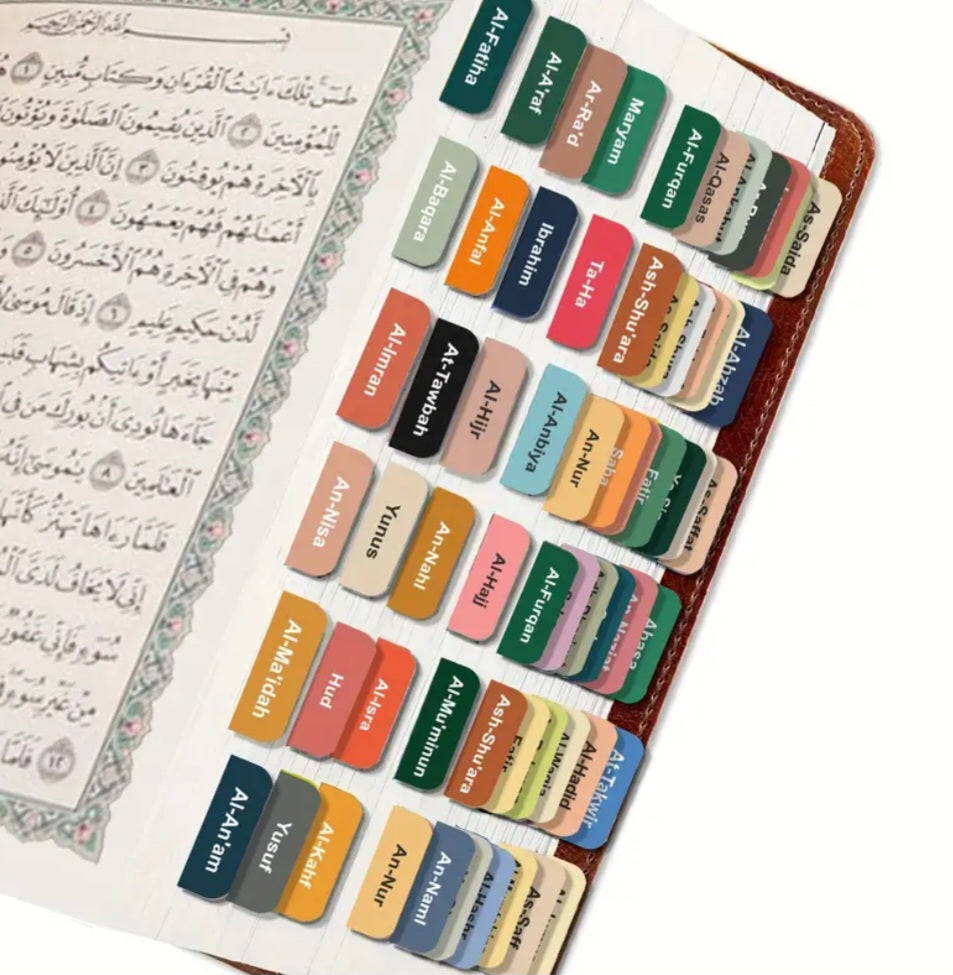 بِسْمِ ٱللَّهِ ٱلرَّحْمَٰنِ ٱلرَّحِيمِ
طسٓ تِلْكَ ءَايَٰتُ ٱلْقُرْءَانِ وَكِتَابٍ مُّبِينٍ ١
لِلْمُؤْمِنِينَ ٢ ٱلَّذِينَ يُقِيمُونَ ٱلصَّلَوٰةَ وَيُؤْتُونَ
بِٱلْأَخِرَةِ هُمْ يُوقِنُونَ ٣ إِنَّ ٱلَّذِينَ لَا
أَعْمَٰلَهُمْ فَهُمْ يَعْمَهُونَ ٤ أُوْلَٰٓئِكَ
وَهُمْ فِي ٱلْأَخِرَةِ هُمُ ٱلْأَخْسَرُونَ ٥
لَّدُنْ حَكِيمٍ عَلِيمٍ ٦ إِذْ قَالَ مُوسَىٰ
مِّنْهَا بِخَبَرٍ أَوْ ءَاتِيكُم بِشِهَابٍ
جَآءَهَا نُودِيَ أَنۢ بُورِكَ مَن فِي
ٱلْعَٰلَمِينَ ٨ يَٰمُوسَىٰٓ
فَلَمَّا رَءَاهَا تَهْتَزُّ
إِنِّي لَا يَخَافُ لَدَيَّ
سُوٓءٍ فَإِنِّي غَفُورٌ
مِنْ غَيْرِ سُوٓءٍ
١٢
Al-Fatiha
Al-A'raf
Ar-Ra'd
Maryam
Al-Furqan
Al-Qasas
As-Sajda
Al-Baqara
Al-Anfal
Ibrahim
Ta-Ha
Ash-Shu'ara
Al-Ahzab
Al-Imran
At-Tawbah
Al-Hijr
Al-Anbiya
An-Nur
Saba
Fatir
As-Saffat
An-Nisa
Yunus
An-Nahl
Al-Hajj
Al-Furqan
Abasa
Al-Ma'idah
Hud
Al-Isra
Al-Mu'minun
Ash-Shu'ara
Fatir
Al-Hadid
At-Takwir
Al-An'am
Yusuf
Al-Kahf
An-Nur
An-Naml
Al-Hashr
As-Saff